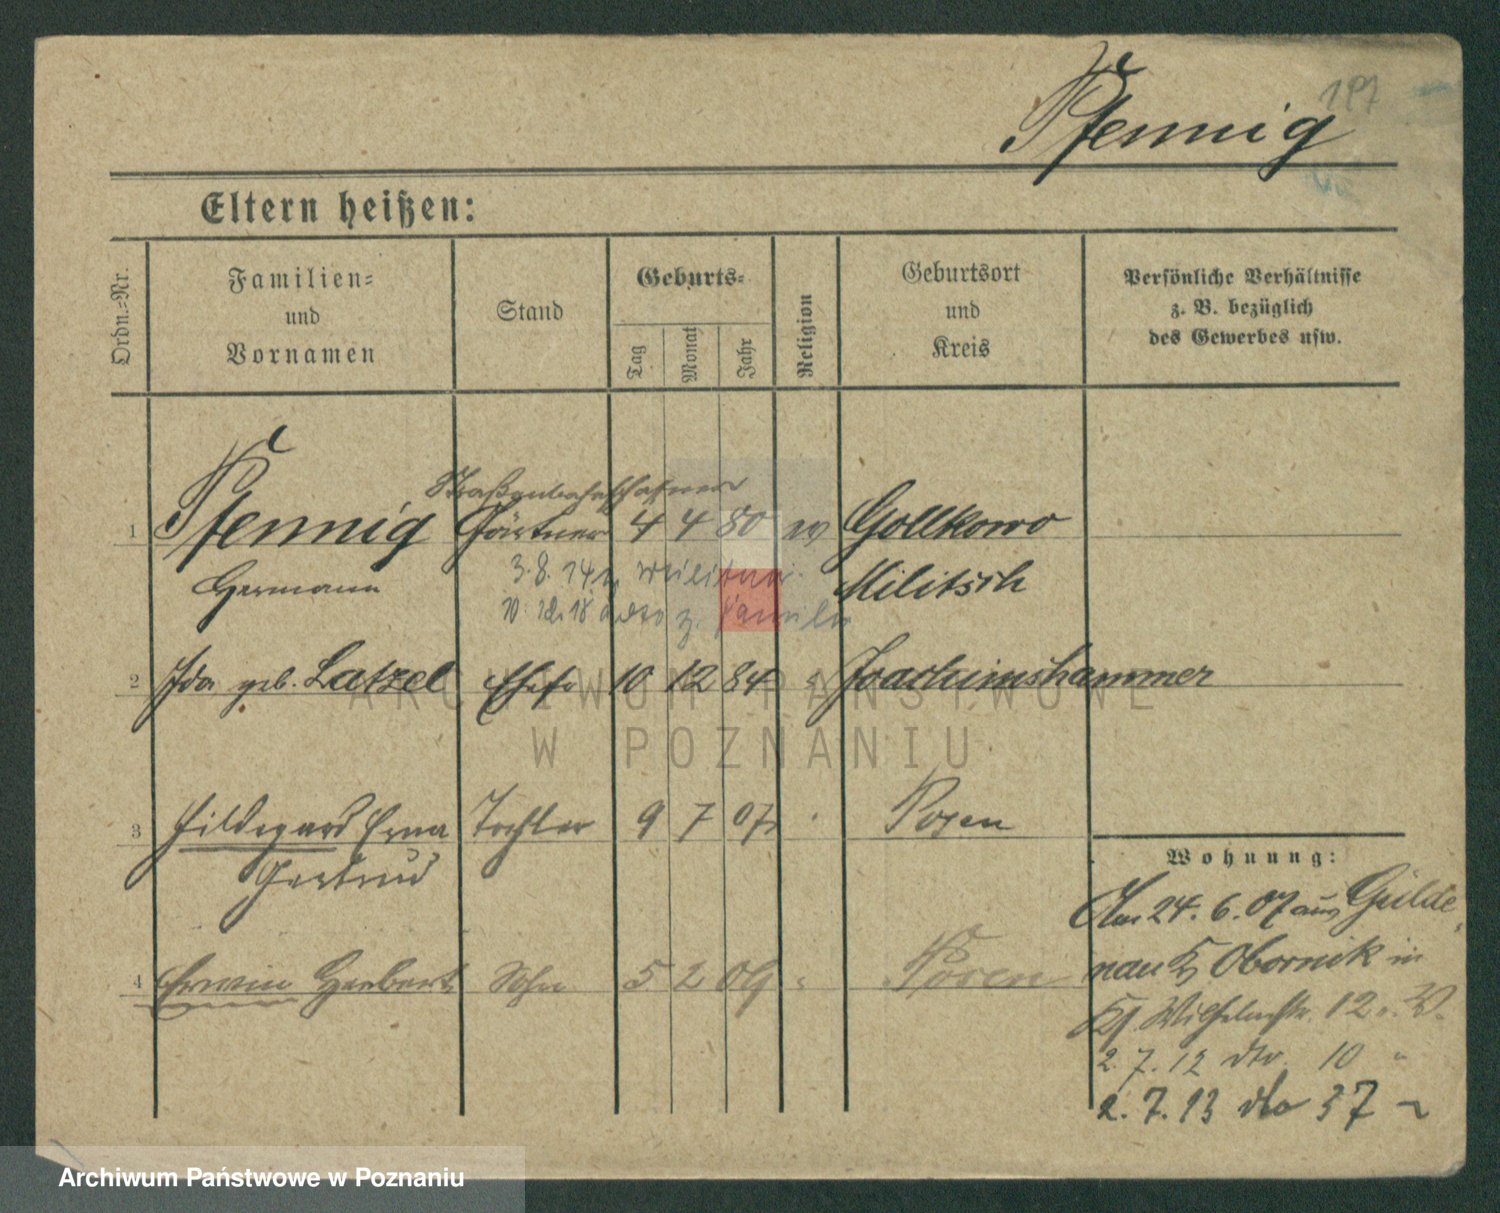 197
Pfennig
Eltern heißen:
Ordn.-Nr.
Familien-
und
Vornamen
Stand
Geburts-
Tag
Monat
Jahr
Religion
Geburtsort
und
Kreis
Persönliche Verhältnisse
z. B. bezüglich
des Gewerbes usw.
Straßenbahnschaffner
1 Pfennig Gärtner 4 4 80 Gollkowo
Hermann 3.8.14 Militär Militsch
10.12.18 z. Familie
2 Ida geb. Latzel Ehefr 10 12 84 " Joachimshammer
ARCHIWUM PAŃSTWOWE
W POZNANIU
3 Hildegard Erna Tochter 9 7 07 Posen
Gertrud
4 Erwin Herbert Sohn 5 2 09 " Posen
Wohnung:
Am 24. 6. 07 aus Gülde
nau Kr Obornik in
Wilhelmstr. 12
2. 7. 12 dto 10 "
2. 7. 13 dto 37
Archiwum Państwowe w Poznaniu